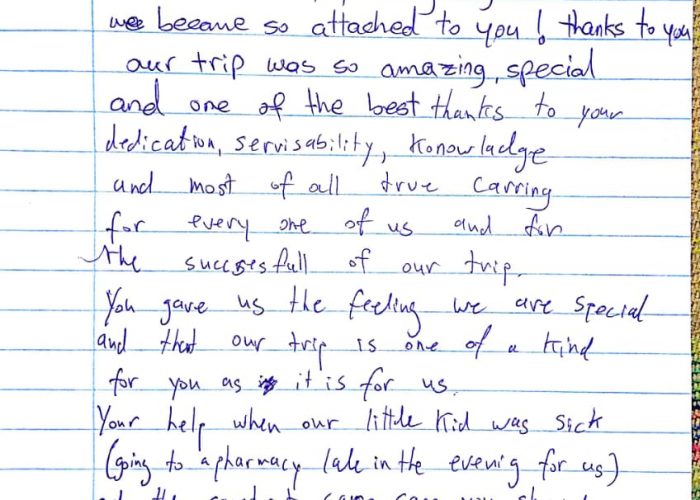 we became so attached to you! thanks to you
our trip was so amazing, special
and one of the best thanks to your
dedication, servisability, Konowladge
and most of all true carring
for every one of us and for
the succsesfull of our trip.
You gave us the feeling we are special
and that our trip is one of a kind
for you as it is for us.
Your help when our little Kid was sick
(going to a pharmacy late in the evenig for us)